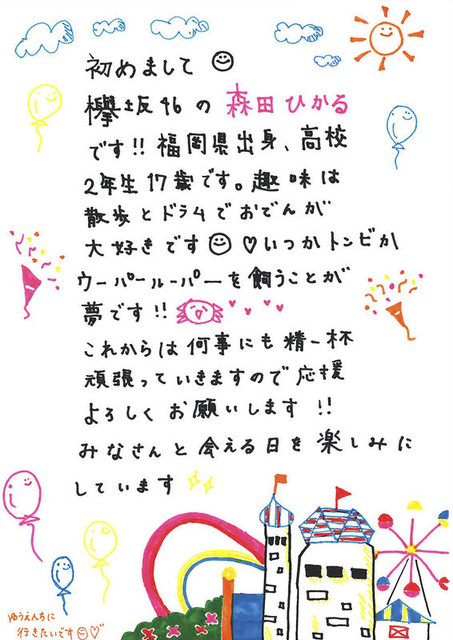 初めまして ☺
欅坂46の 森田ひかる
です!! 福岡県出身、高校
2年生17歳です。趣味は
散歩とドラムでおでんが
大好きです☺♡いつかトンビか
ウーパールーパーを飼うことが
夢です!!
これからは何事にも精一杯
頑張っていきますので応援
よろしくお願いします !!
みなさんと会える日を楽しみに
しています
ゆうえんちに
行きたいです☺♡